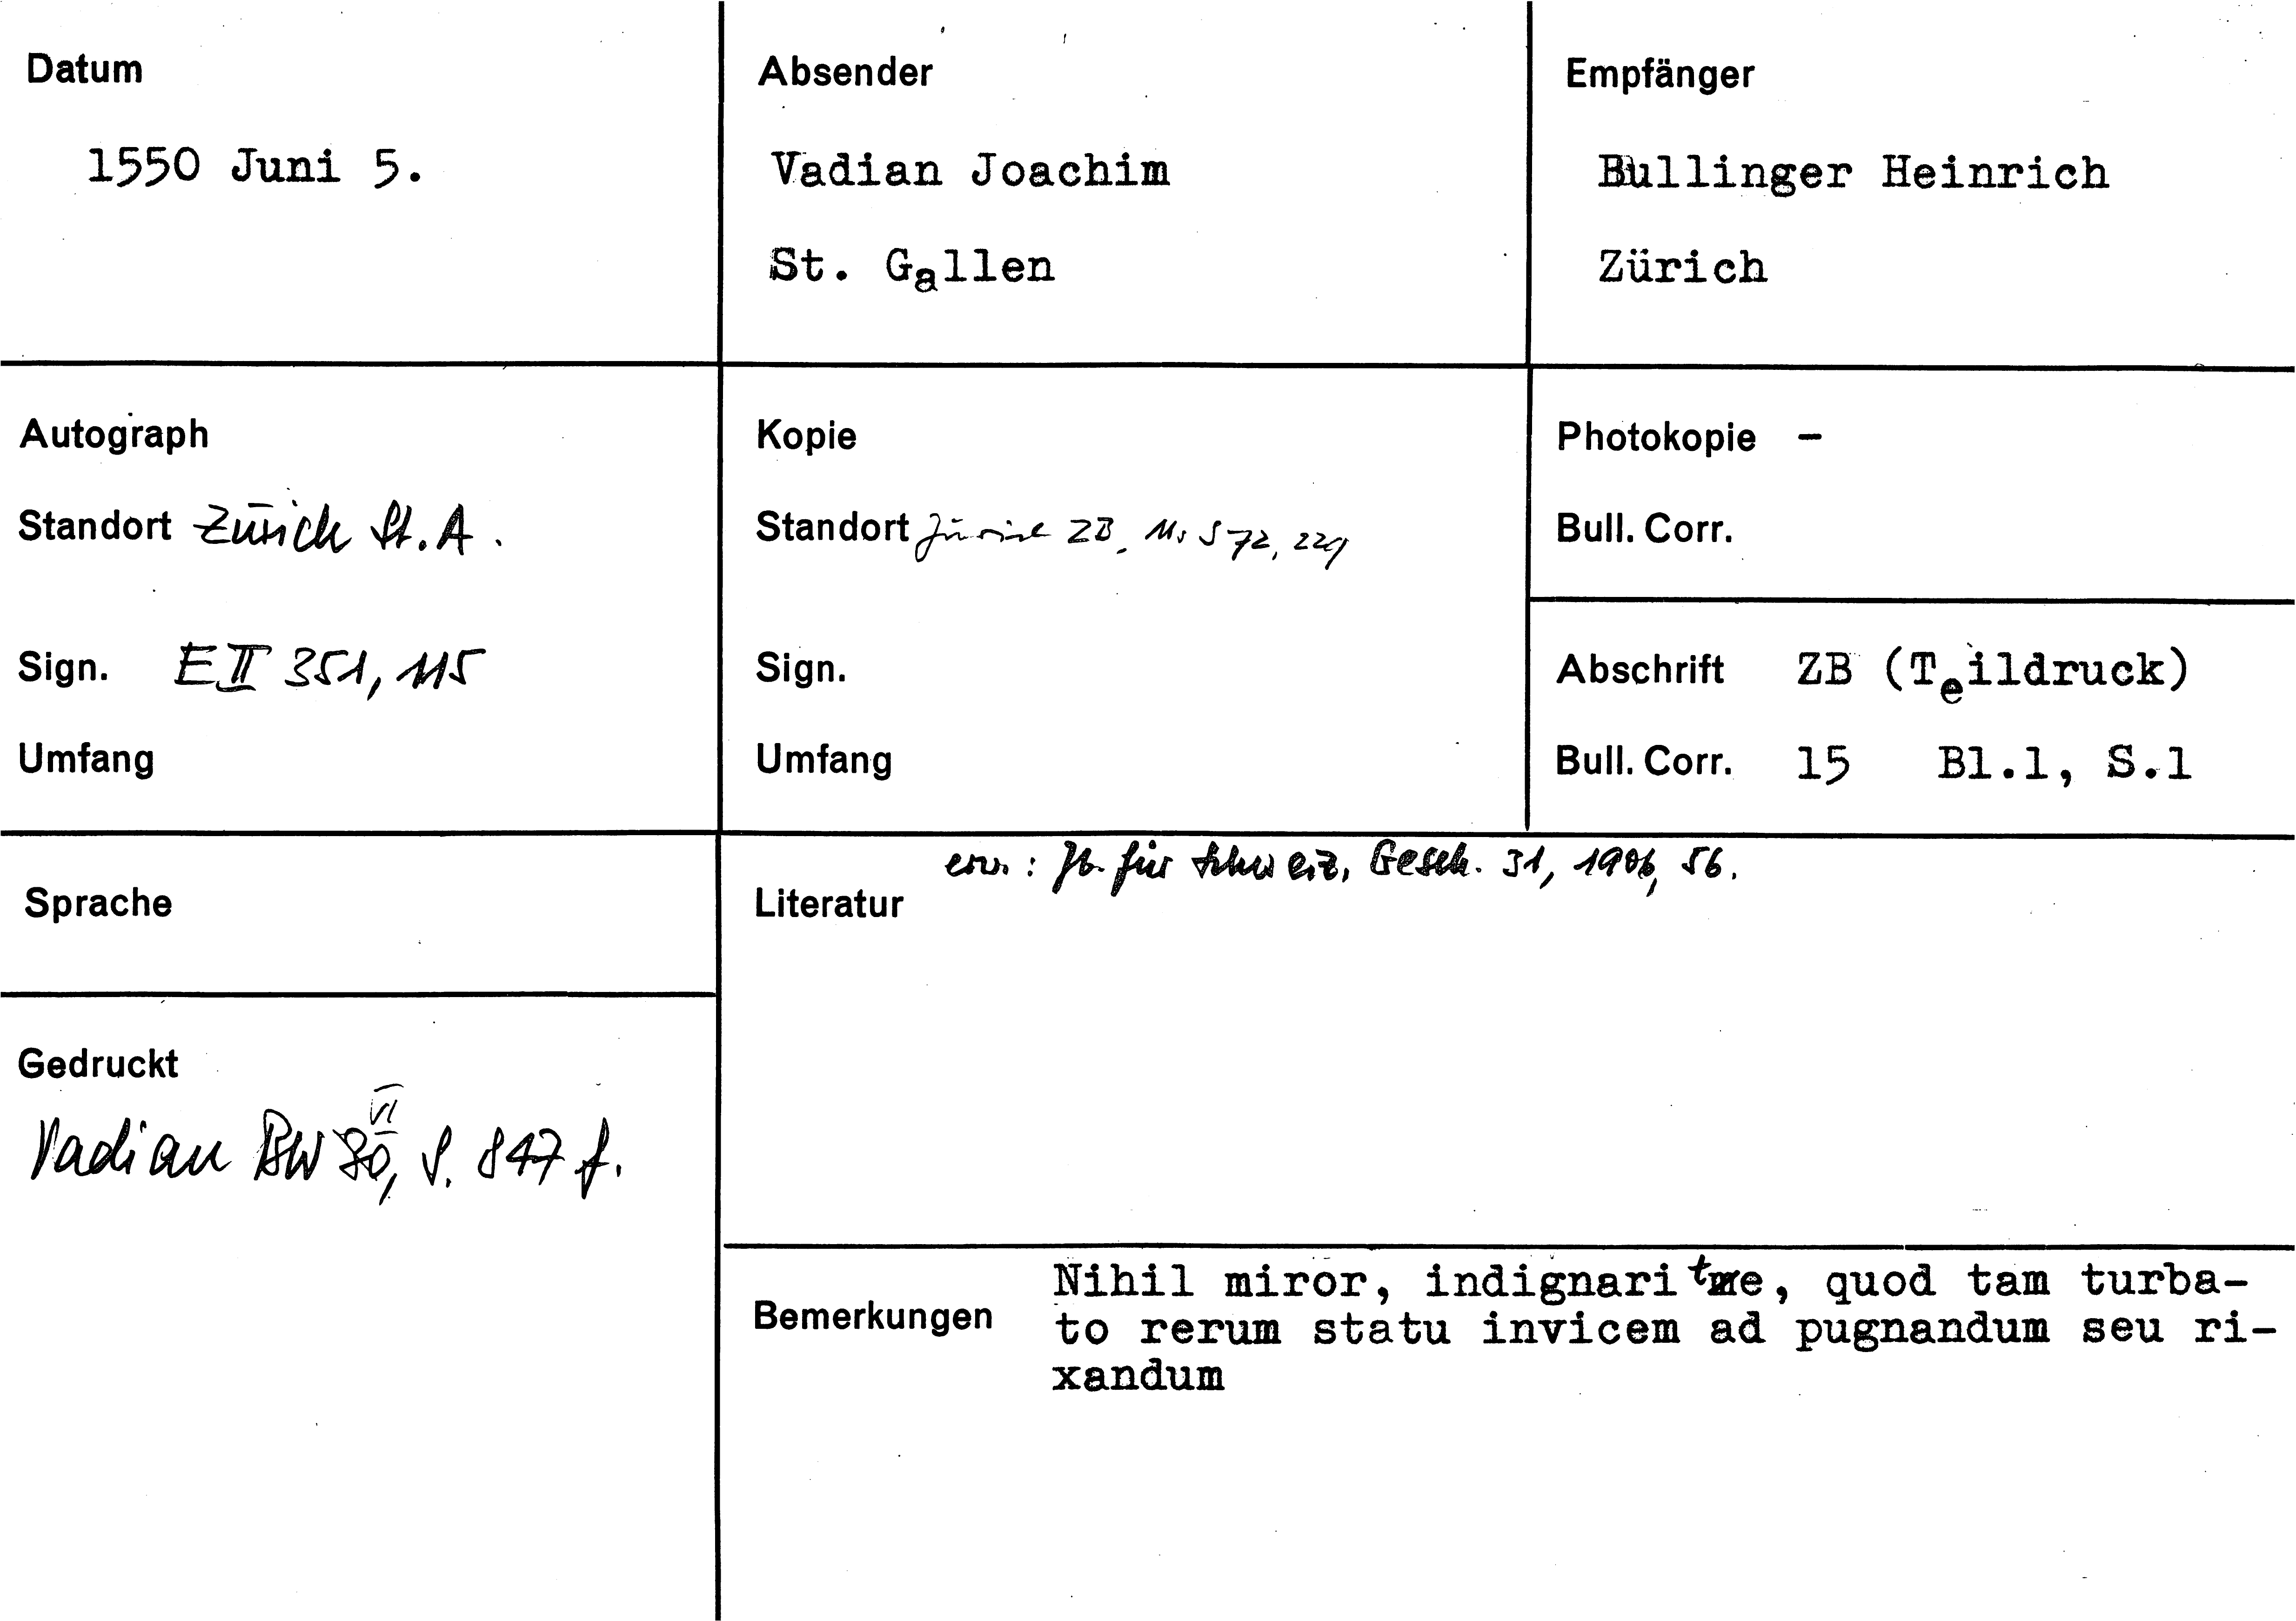 Datum
1550 Juni 5.
Absender
Vadian Joachim
St. Gallen
Empfänger
Bullinger Heinrich
Zürich
Autograph
Standort Zürich St.A.
Sign. E II 351, 115
Umfang
Kopie
Standort Zürich ZB, Ms S 72, 229
Sign.
Umfang
Photokopie -
Bull. Corr.
Abschrift ZB (Teildruck)
Bull. Corr. 15 Bl.1, S.1
Sprache
Gedruckt
VI
Vadian BW, S. 847 f.
erw.: Jb. für Schweiz. Gesch. 31, 1906, 56.
Literatur
Bemerkungen
Nihil miror, indignari te, quod tam turba-
to rerum statu invicem ad pugnandum seu ri-
xandum